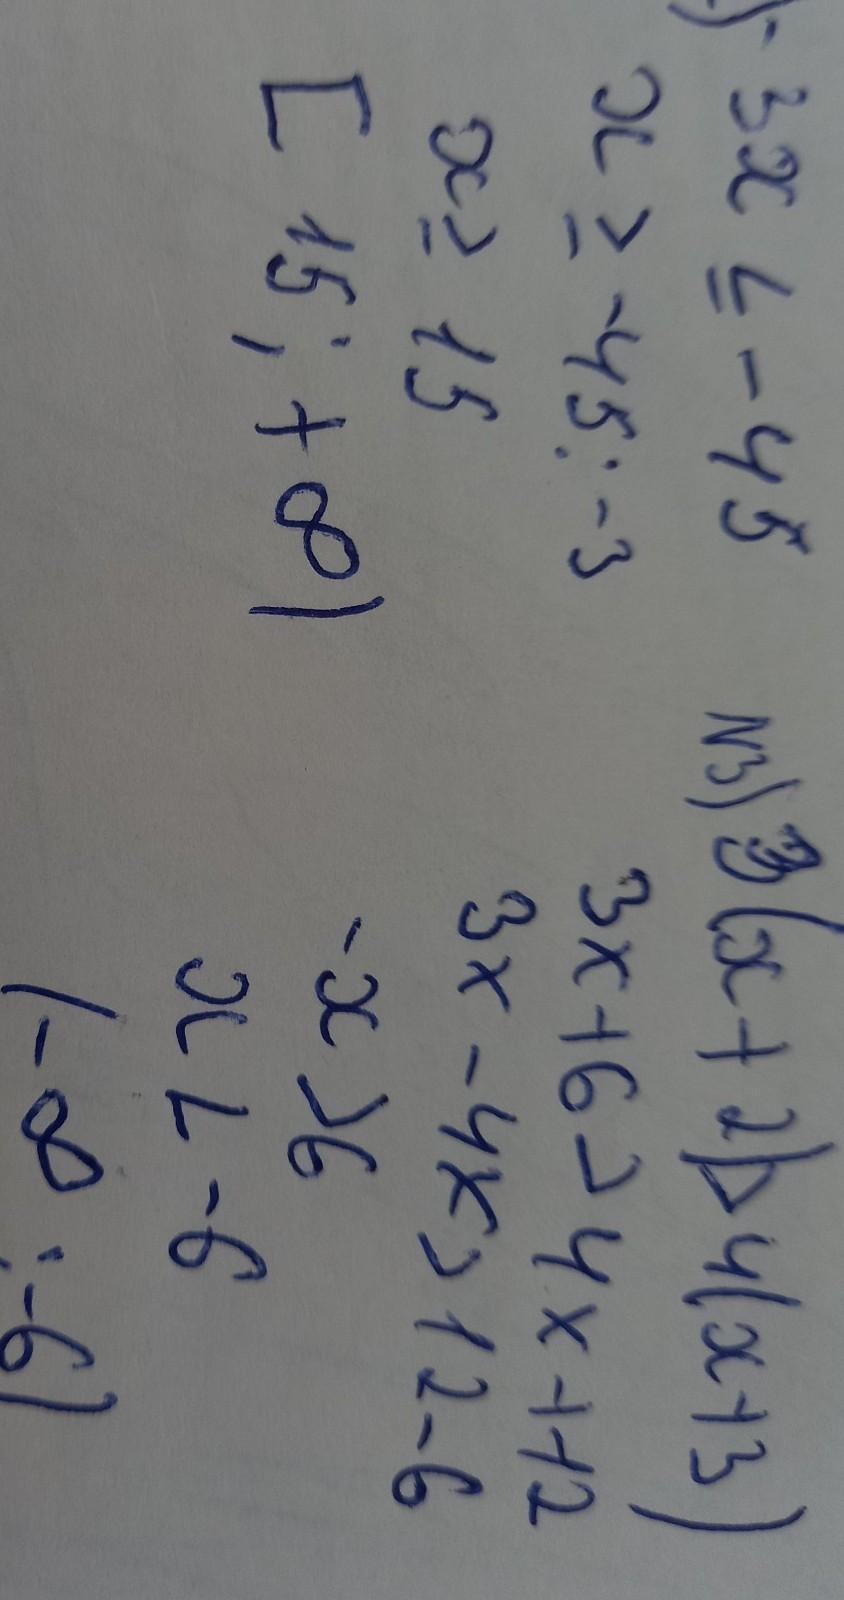 )-3x ≤ -45
x ≥ -45:-3
x ≥ 15
[15; +∞)
N3) 3(x+2)>4(x+3)
3x+6>4x+12
3x-4x>12-6
-x>6
x<-6
(-∞;-6)